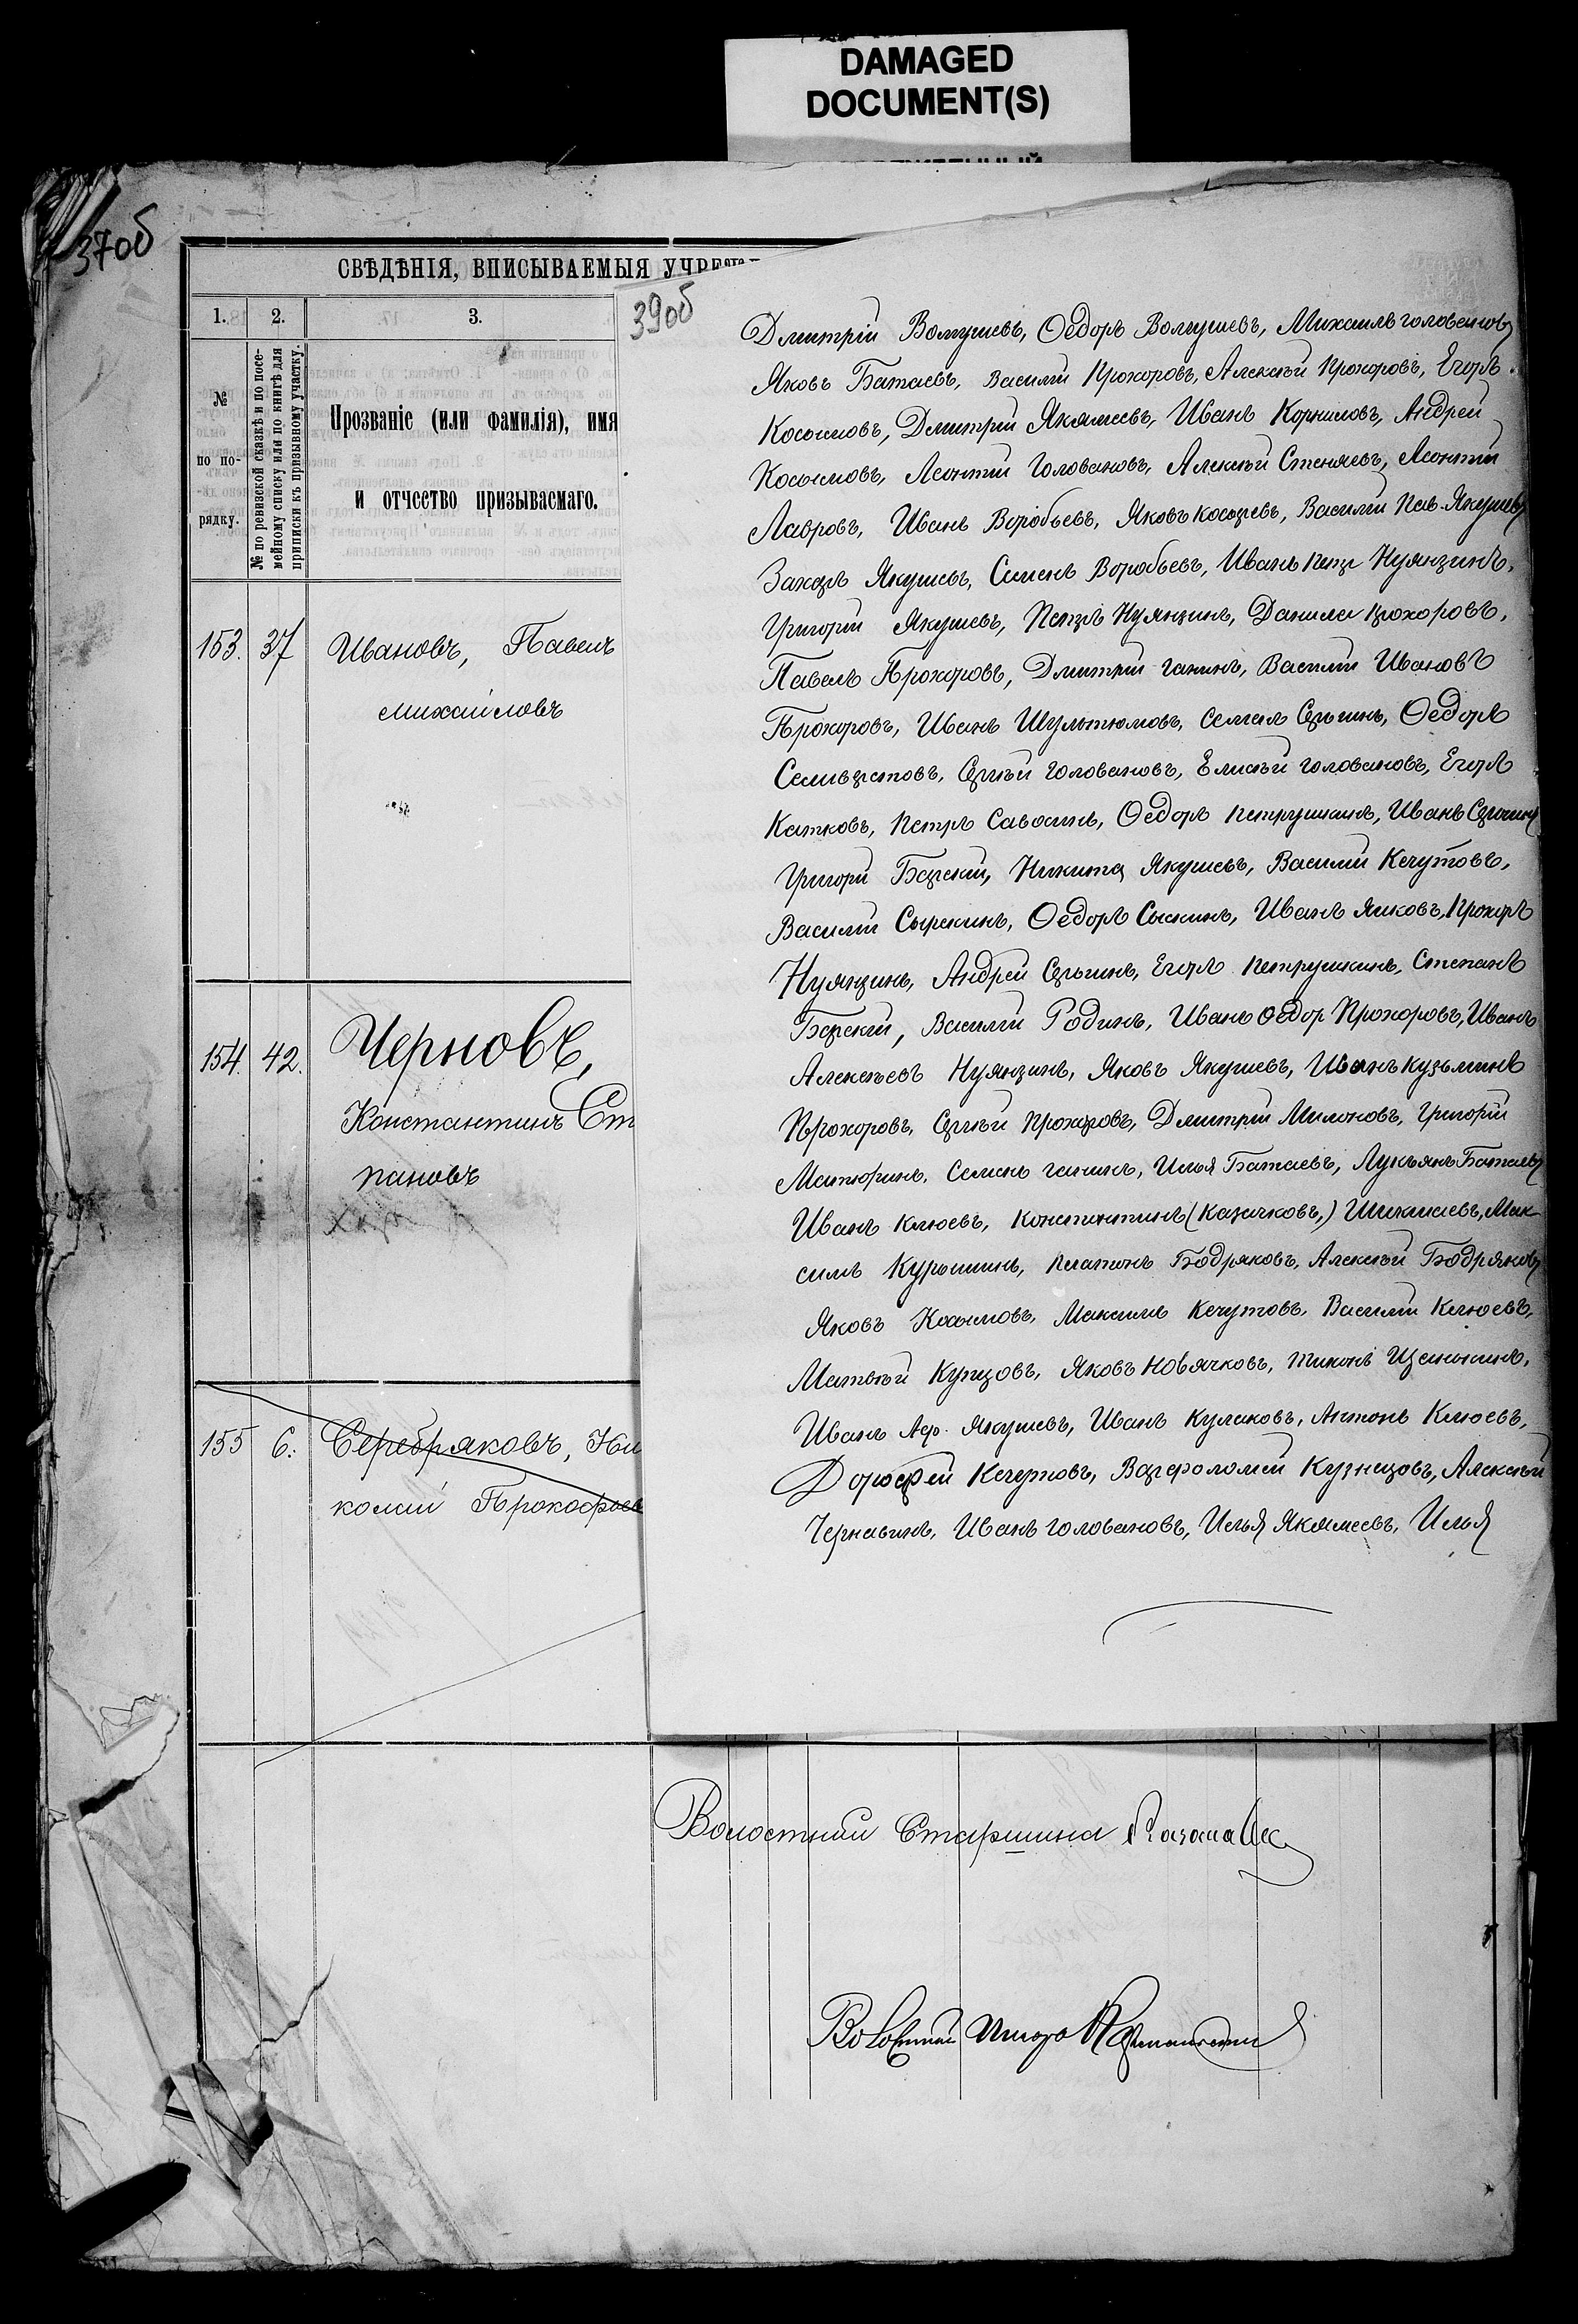 DAMAGED
DOCUMENT(S)
370б
СВѢДѢНІЯ, ВПИСЫВАЕМЫЯ
1. 2. 3.
№ по по-
рядку.
№ по ревизской сказкѣ и по посе-
мейному списку или по книгѣ для
приписки къ призывному участку.
Прозваніе (или фамилія), имя
и отчество призываемаго.
153. 37 Ивановъ, Павелъ
Михайловъ
154. 42. Черновъ,
Константинъ Сте
пановъ
155 6. Серебряковъ, Ни
колай Прокофьев
390б
Дмитрій Волгушевъ, Ѳедоръ Волгушевъ, Михаилъ Головановъ
Яковъ Батаевъ, Василій Прохоровъ, Алексѣй Прохоровъ, Егоръ
Косымовъ, Дмитрій Якямсевъ, Иванъ Корниловъ, Андрей
Косымовъ, Леонтій Головановъ, Алексѣй Стеняевъ, Леонтій
Лавровъ, Иванъ Воробьевъ, Яковъ Косыревъ, Василій Пав. Якушевъ
Захаръ Якушевъ, Семенъ Воробьевъ, Иванъ Петр Нуянзинъ,
Григорій Якушевъ, Петръ Нуянзинъ, Данила Прохоровъ,
Павелъ Прохоровъ, Дмитрій Ганинъ, Василій Ивановъ
Прохоровъ, Иванъ Шультюмовъ, Семенъ Сергинъ, Ѳедоръ
Селиверстовъ, Сергѣй Головановъ, Елисѣй Головановъ, Егоръ
Катковъ, Петръ Савосинъ, Ѳедоръ Петрушкинъ, Иванъ Сергинъ
Григорій Барскій, Никита Якушевъ, Василій Кечутовъ,
Василій Сыркинъ, Ѳедоръ Сыскинъ, Иванъ Яиковъ, Прохоръ
Нуянзинъ, Андрей Сергинъ, Егоръ Петрушкинъ, Степанъ
Барскій, Василій Родинъ, Иванъ Ѳедор Прохоровъ, Иванъ
Алексѣевъ Нуянзинъ, Яковъ Якушевъ, Иванъ Кузьминъ
Прохоровъ, Сергѣй Прохоровъ, Дмитрій Милоновъ, Григорій
Матюринъ, Семенъ Ганинъ, Илья Батаевъ, Лукьянъ Батаевъ
Иванъ Клюевъ, Константинъ (Казачковъ,) Шикмаевъ, Мак-
симъ Курышинъ, Платонъ Бодряковъ, Алексѣй Бодряковъ
Яковъ Косымовъ, Максимъ Кечутовъ, Василій Клюевъ,
Матвѣй Купцовъ, Яковъ Новячковъ, Тихонъ Щанькинъ,
Иванъ Аф. Якушевъ, Иванъ Кулаковъ, Антонъ Клюевъ,
Дорофей Кечутовъ, Варфоломей Кузнецовъ, Алексѣй
Чернавинъ, Иванъ Головановъ, Илья Якямсевъ, Илья
Волостной Старшина
Волостной Писарь